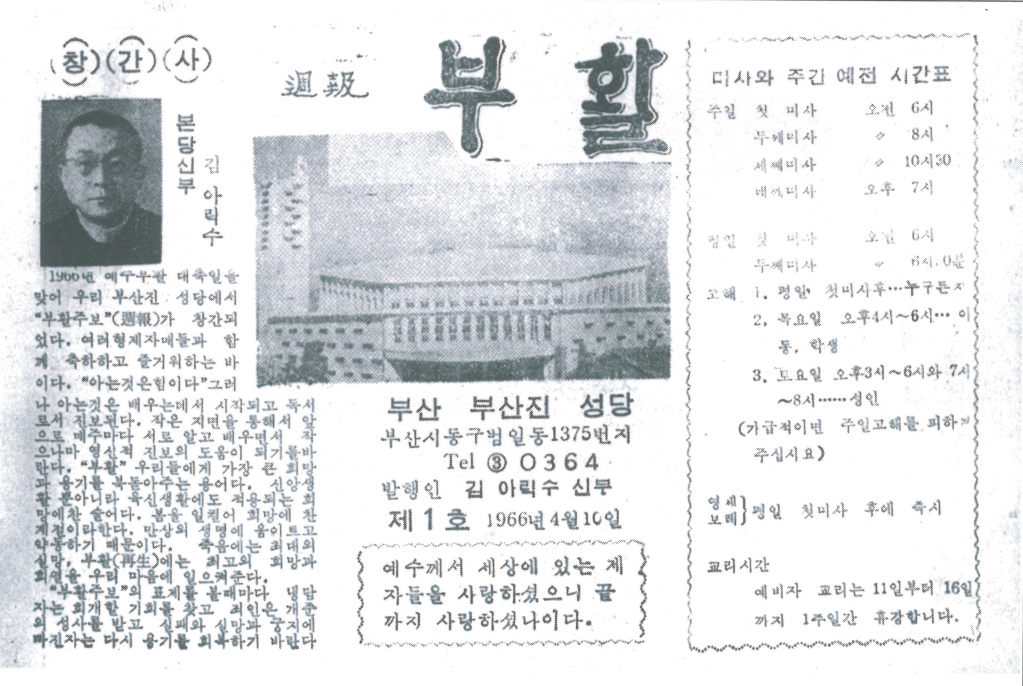 (창)(간)(사)
본당신부
김 아릭수
1966년 예수부활 대축일을
맞어 우리 부산진 성당에서
"부활주보"(週報)가 창간되
었다. 여러형제자매들과 함
께 축하하고 즐거워하는 바
이다. "아는것은힘이다"그러
나 아는것은 배우는데서 시작되고 독서
로서 진보된다. 작은 지면을 통해서 앞
으로 매주마다 서로 알고 배우면서 작
으나마 영신적 진보의 도움이 되기를바
란다. "부활" 우리들에게 가장 큰 희망
과 용기를 북돋아주는 용어다. 신앙생
활 뿐아니라 육신생활에도 적용되는 희
망에찬 술어다. 봄을 일컬어 희망에 찬
계절이라한다. 만상의 생명에 움이트고
약동하기 때문이다. 죽음에는 최대의
실망, 부활(再生)에는 최고의 희망과
희열을 우리 마음에 일으켜준다.
"부활주보"의 표제를 볼때마다 냉담
자는 회개할 기회를 찾고 죄인은 개준
의 성사를 받고 실패와 실망과 궁지에
빠진자는 다시 용기를 회복하기 바란다
週報 부활
부산 부산진 성당
부산시동구범일동1375번지
Tel ③ 0364
발행인 김 아릭수 신부
제1호 1966년4월10일
예수께서 세상에 있는 제
자들을 사랑하셨으니 끝
까지 사랑하셨나이다.
미사와 주간 예전 시간표
주일 첫 미사 오전 6시
두째미사 〃 8시
세째미사 〃 10시30
네째미사 오후 7시
평일 첫 미사 오전 6시
두째미사 〃
고해 1. 평일, 첫미사후…누구든지
2, 목요일 오후4시~6시… 아
동, 학생
3. 토요일 오후3시~6시와 7시
~8시……성인
(가급적이면 주일고해를 피하여
주십시요)
영세
보례} 평일 첫미사 후에 즉시
교리시간
예비자 교리는 11일부터 16일
까지 1주일간 휴강합니다.